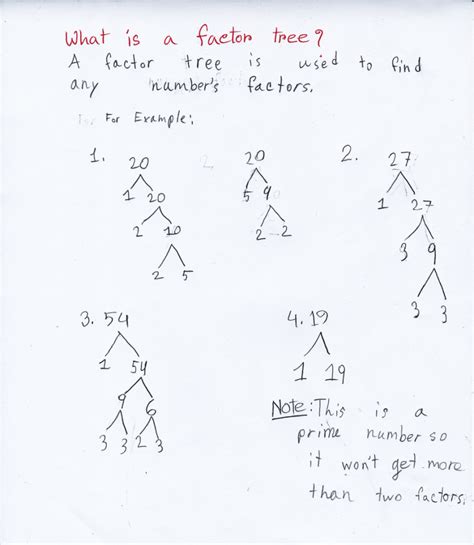 What is a factor tree?
A factor tree is used to find
any number's factors.
For Example:
1. 20
1 20
2 10
2 5
20
5 4
2 2
2. 27
1 27
3 9
3 3
3. 54
1 54
9 6
3 3 2 3
4. 19
1 19
Note: This is a
prime number so
it won't get more
than two factors.